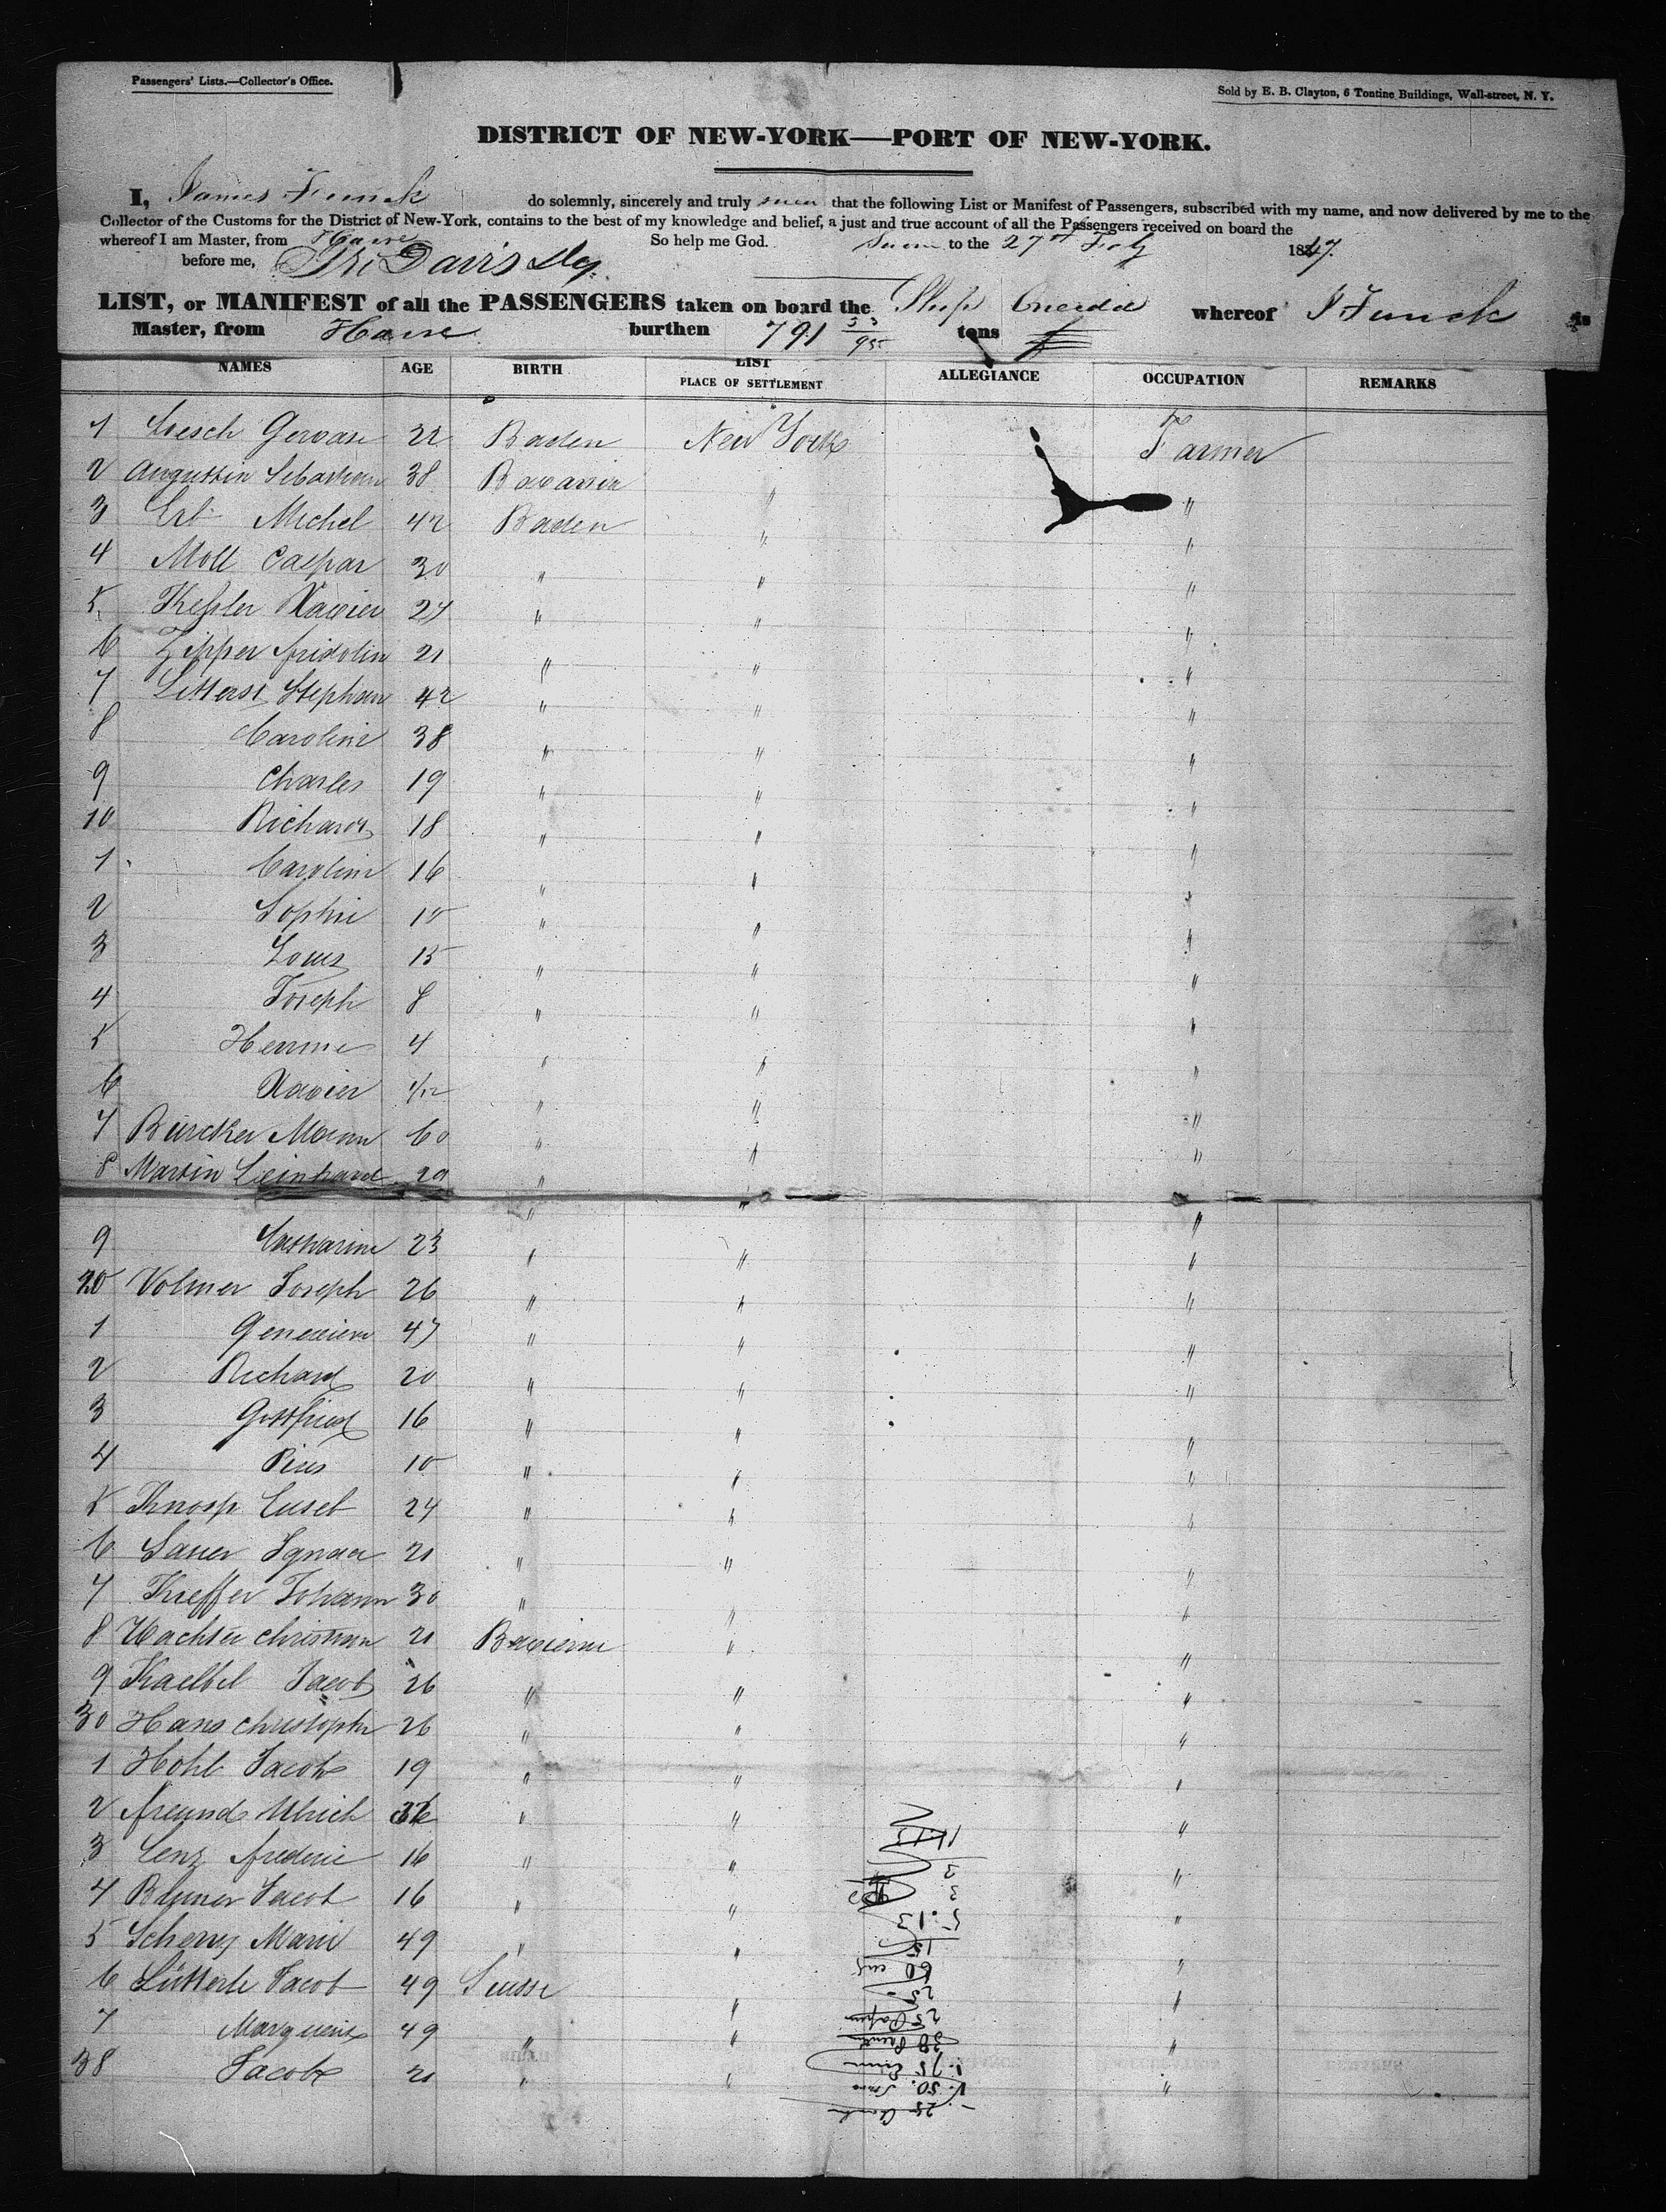 Passengers' Lists.—Collector's Office.
Sold by E. B. Clayton, 6 Tontine Buildings, Wall-street, N. Y.
DISTRICT OF NEW-YORK—PORT OF NEW-YORK.
I, James Funck do solemnly, sincerely and truly that the following List or Manifest of Passengers, subscribed with my name, and now delivered by me to the
Collector of the Customs for the District of New-York, contains to the best of my knowledge and belief, a just and true account of all the Passengers received on board the
whereof I am Master, from Havre So help me God. to the 27 1847.
before me, Davis
LIST, or MANIFEST of all the PASSENGERS taken on board the Ship Oneida whereof J Funck is
Master, from Havre burthen 791 53/95 tons
NAMES AGE BIRTH LIST PLACE OF SETTLEMENT ALLEGIANCE OCCUPATION REMARKS
1 Gervase 22 Baden New York Farmer
2 Augustin Sebastian 38 Bavaria " "
3 Erb Michel 42 Baden " "
4 Moll Caspar 30 " " "
5 Kessler Xavier 27 " " "
6 Zipper fridolin 21 " " "
7 Litterst Stephan 42 " " "
8 Caroline 38 " " "
9 Charles 19 " " "
10 Richard 18 " " "
1 Caroline 16 " " "
2 Sophie " " "
3 Louis " " "
4 Joseph 8 " " "
5 4 " " "
6 Xavier " " "
7 60 " " "
8 Martin Leinhard 29 " " "
9 Catharine 23 " " "
20 Volmer Joseph 26 " " "
1 Genevieve 47 " " "
2 Richard 20 " " "
3 Gottfried 16 " " "
4 Pius 10 " " "
5 Knosp Euseb 24 " " "
6 Ignace 21 " " "
7 Kieffer Johann 30 " " "
8 christian 21 " "
9 Kaelbel Jacob 26 " " "
30 Hans christoph 26 " " "
1 Hohl Jacob 19 " " "
2 freund Ulrich 36 " " "
3 Lenz frederic 16 " " "
4 Jacob 16 " " "
5 Marie 49 " " "
6 Lütterle Jacob 49 Suisse " "
7 49 " " "
38 Jacob 21 " " "